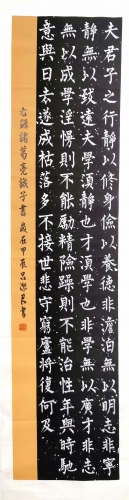 夫君子之行靜以修身儉以養德非澹泊無以明志非寧
靜無以致遠夫學須靜也才須學也非學無以廣才非志
無以成學淫慢則不能勵精險躁則不能治性年與時馳
意與日去遂成枯落多不接世悲守窮廬將復何及
右錄諸葛亮誡子書歲在甲辰